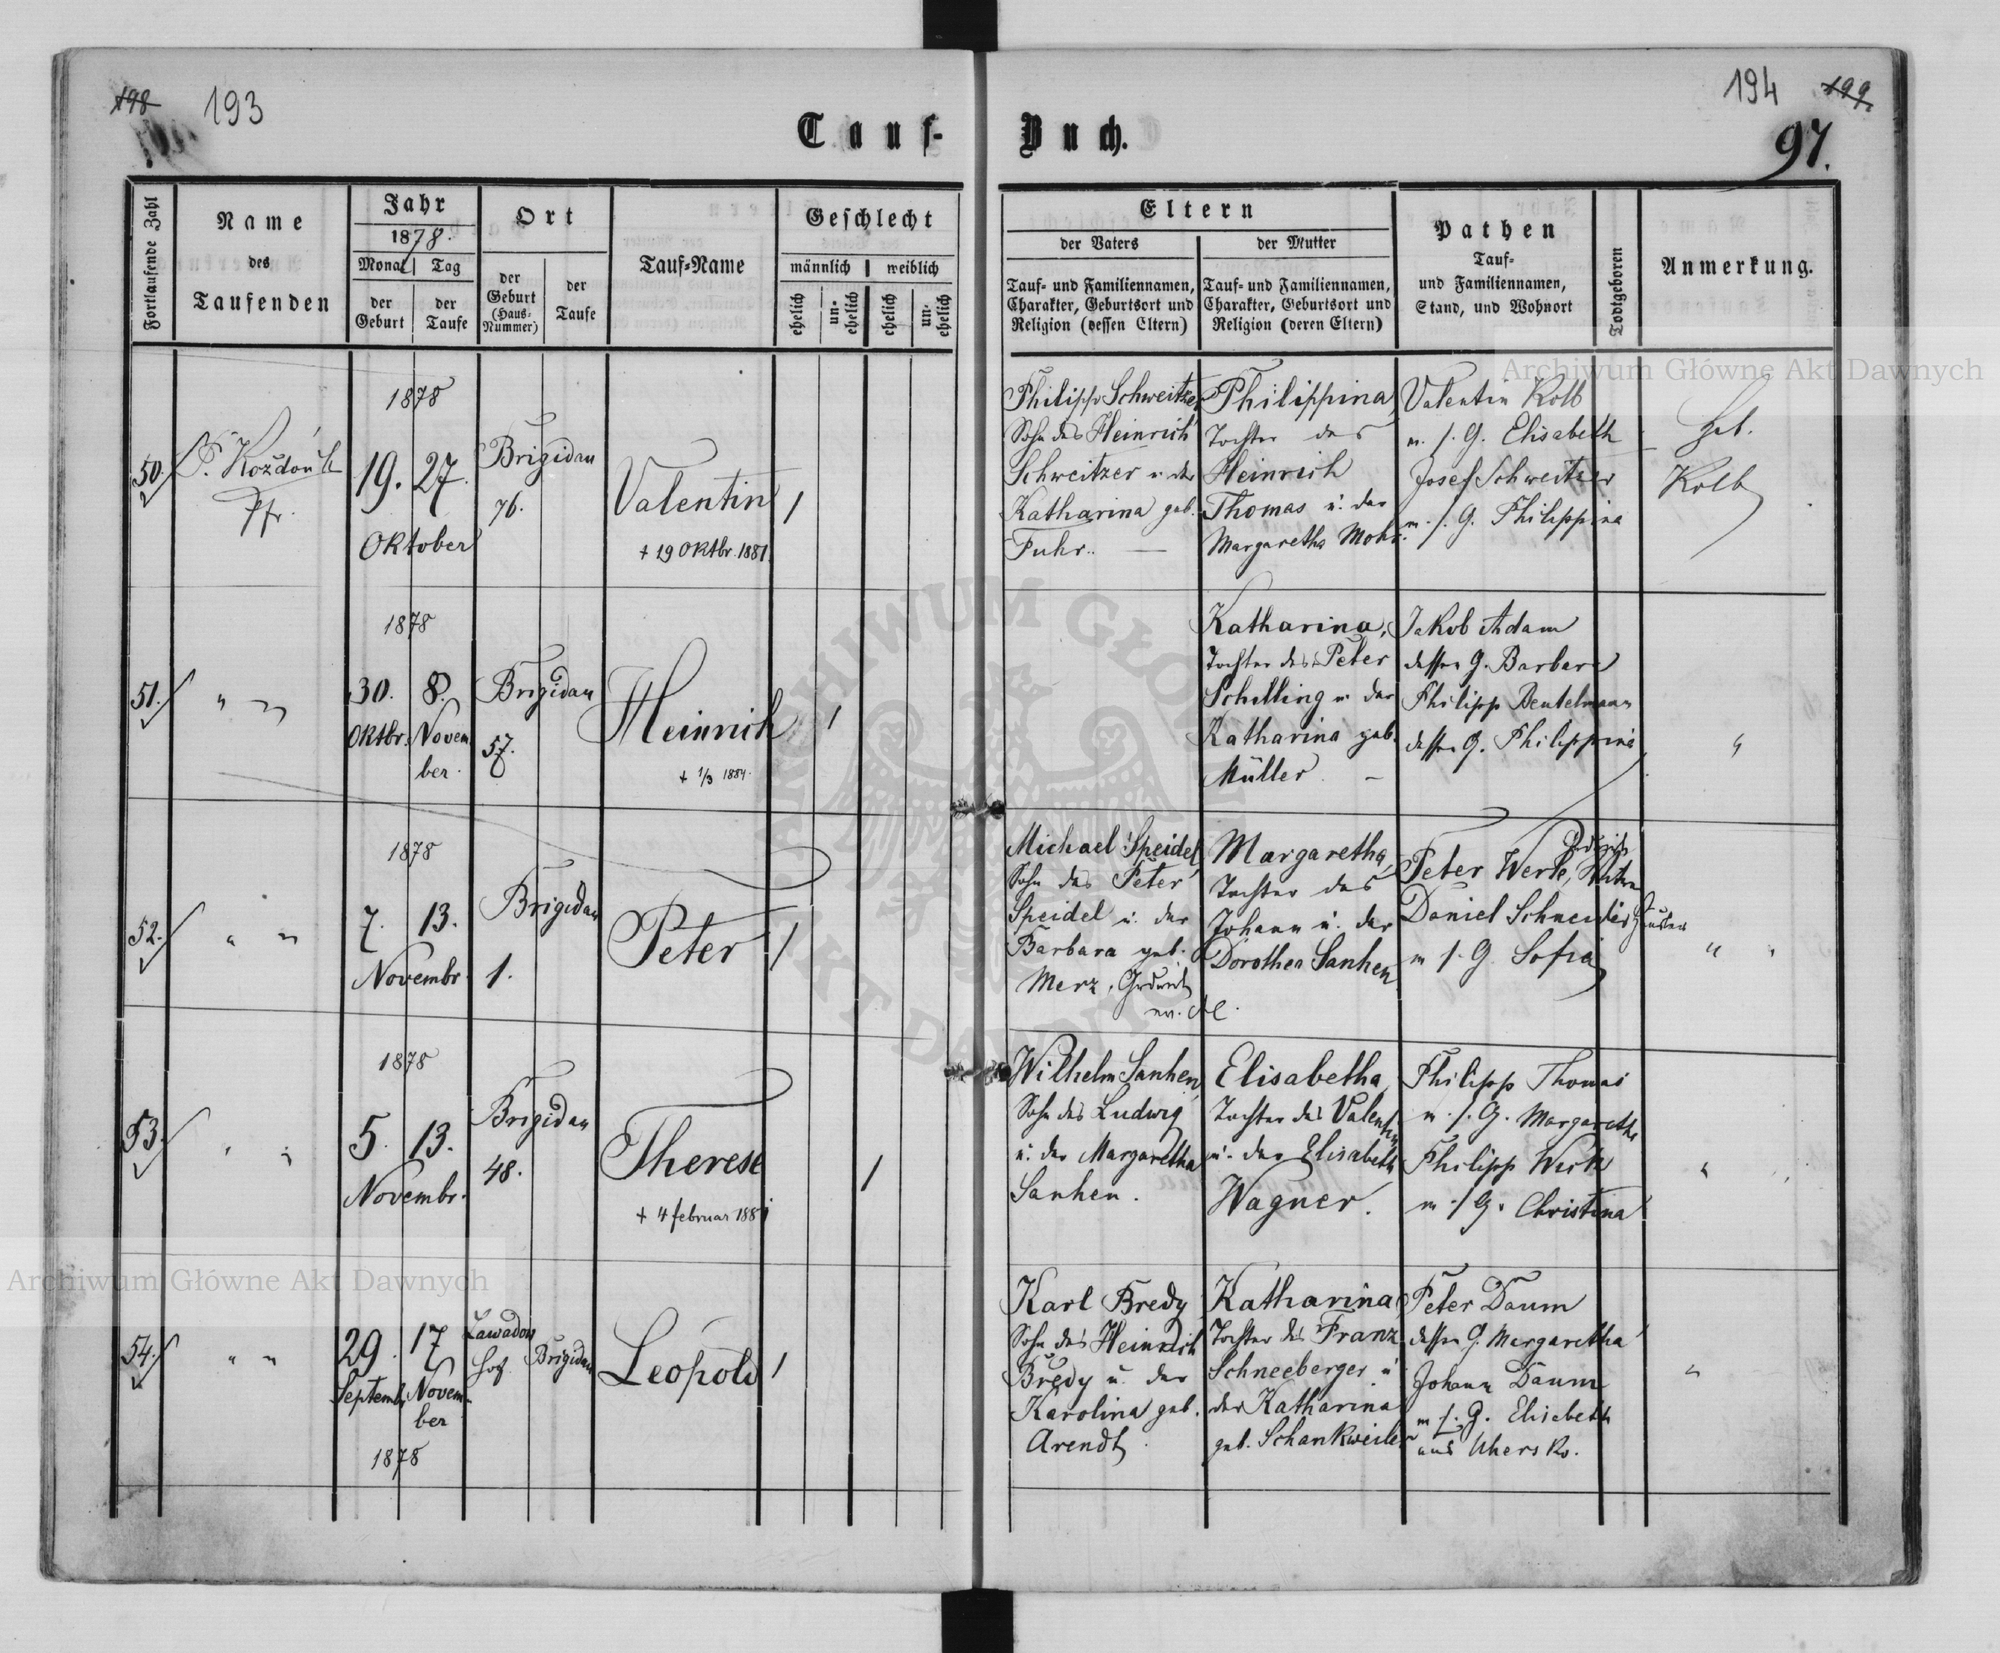 198 193
194 199.
97.
Tauf-Buch.
Fortlaufende Zahl
Name
des
Taufenden
Jahr
1878.
Monat Tag
der Geburt
der Taufe
Ort
der
Geburt
(Haus-
Nummer)
der
Taufe
Tauf-Name
Geschlecht
männlich weiblich
ehelich
un-
ehelich
ehelich
un-
ehelich
Eltern
der Vaters
der Mutter
Tauf- und Familiennamen,
Charakter, Geburtsort und
Religion (dessen Eltern)
Tauf- und Familiennamen,
Charakter, Geburtsort und
Religion (deren Eltern)
Pathen
Tauf-
und Familiennamen,
Stand, und Wohnort
Todtgeboren
Anmerkung.
1878
50.
Pfr.
19. 27.
Oktober
Brigidau
76.
Valentin
+ 19 Oktbr. 1881.
/
Philipp Schweitzer
Sohn des Heinrich
Schweitzer u. der
Katharina geb.
Fuhr. —
Philippina,
Tochter des
Heinrich
Thomas u. der
Margaretha Mohr.
Valentin Kolb
m. s. G. Elisabeth
Josef Schweitzer
m. s. G. Philippina
Heb.
Kolb
1878
51.
" "
30. 8.
Oktbr. Novem
ber.
Brigidau
57.
Heinrich
+ 1/3 1884.
/
Katharina,
Tochter des Peter
Schilling u. der
Katharina geb.
Müller. —
Jakob Adam
dessen G. Barbara
Philipp Beutelmann
dessen G. Philippina
"
1878
52.
" "
7. 13.
Novembr.
Brigidau
1.
Peter
/
Michael Speidel,
Sohn des Peter
Speidel u. der
Barbara geb.
Merz,
Margaretha,
Tochter des
Johann u. der
Dorothea Sanhen
Peter Werle,
Daniel Schneider
m. s. G. Sofia
"
1878
53.
" "
5. 13.
Novembr.
Brigidau
48.
Therese
+ 4 februar 1881
/
Wilhelm Sanhen,
Sohn des Ludwig
u. der Margaretha
Sanhen.
Elisabetha,
Tochter des Valentin
u. der Elisabeth
Wagner.
Philipp Thomas
m. s. G. Margaretha
Philipp
m. s. G. Christina
"
54.
" "
29. 17
Septembr. Novem-
ber
1878
Zawadow
Hof
Brigidau
Leopold
/
Karl Bredy
Sohn des Heinrich
Bredy u. der
Karolina geb.
Arendt
Katharina,
Tochter des Franz
Schneeberger u.
der Katharina
geb. Schankweiler
Peter Daum
dessen G. Margaretha
Johann Daum
m. s. G. Elisabeth
aus Uhersko.
"
Archiwum Główne Akt Dawnych
Archiwum Główne Akt Dawnych
ARCHIWUM GŁÓWNE AKT DAWNYCH